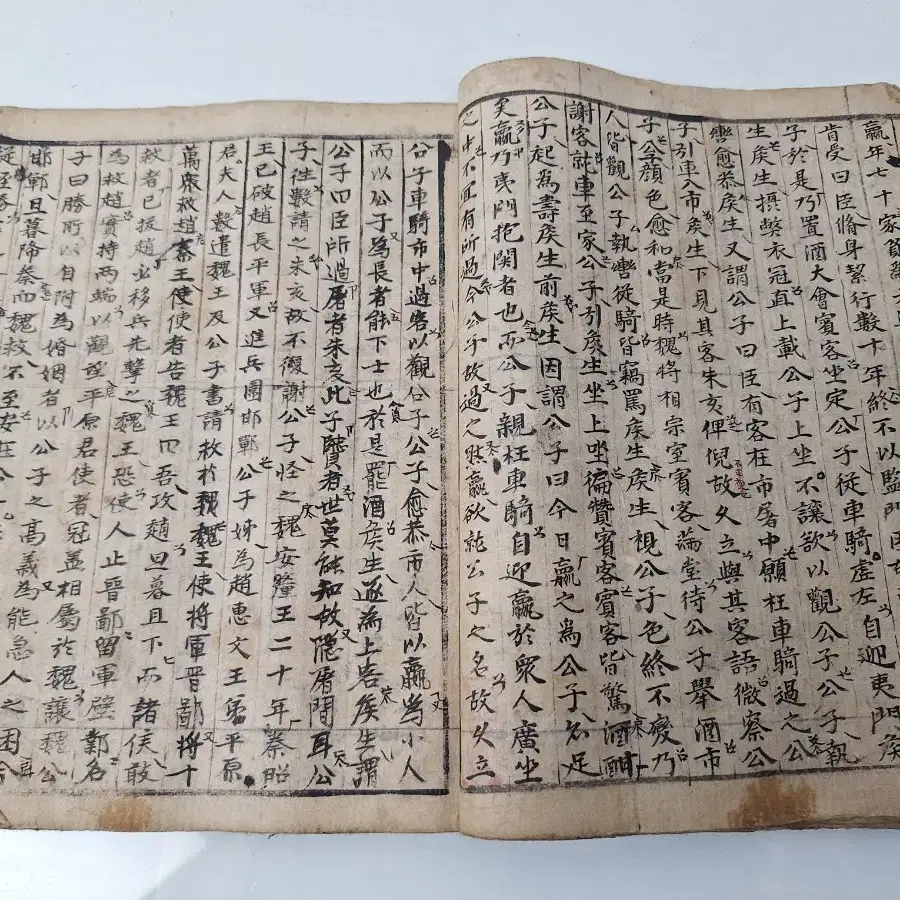 嬴年七十家貧為
肯受曰臣脩身絜行數十年終不以監門困故
子於是乃置酒大會賓客坐定公子從車騎虛左自迎夷門侯
生侯生攝弊衣冠直上載公子上坐不讓欲以觀公子公子執
轡愈恭侯生又謂公子曰臣有客在市屠中願枉車騎過之公
子引車入市侯生下見其客朱亥俾倪故久立與其客語微察公
子公顏色愈和當是時魏將相宗室賓客滿堂待公子舉酒市
人皆觀公子執轡從騎皆竊罵侯生侯生視公子色終不變乃
謝客就車至家公子引侯生坐上坐徧贊賓客賓客皆驚酒酣
公子起為壽侯生前侯生因謂公子曰今日嬴之為公子亦足
矣嬴乃夷門抱關者也而公子親枉車騎自迎嬴於眾人廣坐
之中不宜有所過今公子故過之然嬴欲就公子之名故久立
公子車騎市中過客以觀公子公子愈恭市人皆以嬴為小人
而以公子為長者能下士也於是罷酒侯生遂為上客侯生謂
公子曰臣所過屠者朱亥此子賢者世莫能知故隱屠間耳公
子往數請之朱亥故不復謝公子怪之魏安釐王二十年秦昭
王已破趙長平軍又進兵圍邯鄲公子姊為趙惠文王弟平原
君夫人數遺魏王及公子書請救於魏魏王使將軍晉鄙將十
萬眾救趙秦王使使者告魏王曰吾攻趙旦暮且下而諸侯敢
救者已拔趙必移兵先擊之魏王恐使人止晉鄙留軍壁鄴名
為救趙實持兩端以觀望平原君使者冠蓋相屬於魏讓魏公
子曰勝所以自附為婚姻者以公子之高義為能急人之困今
邯鄲旦暮降秦而魏救不至安在公子